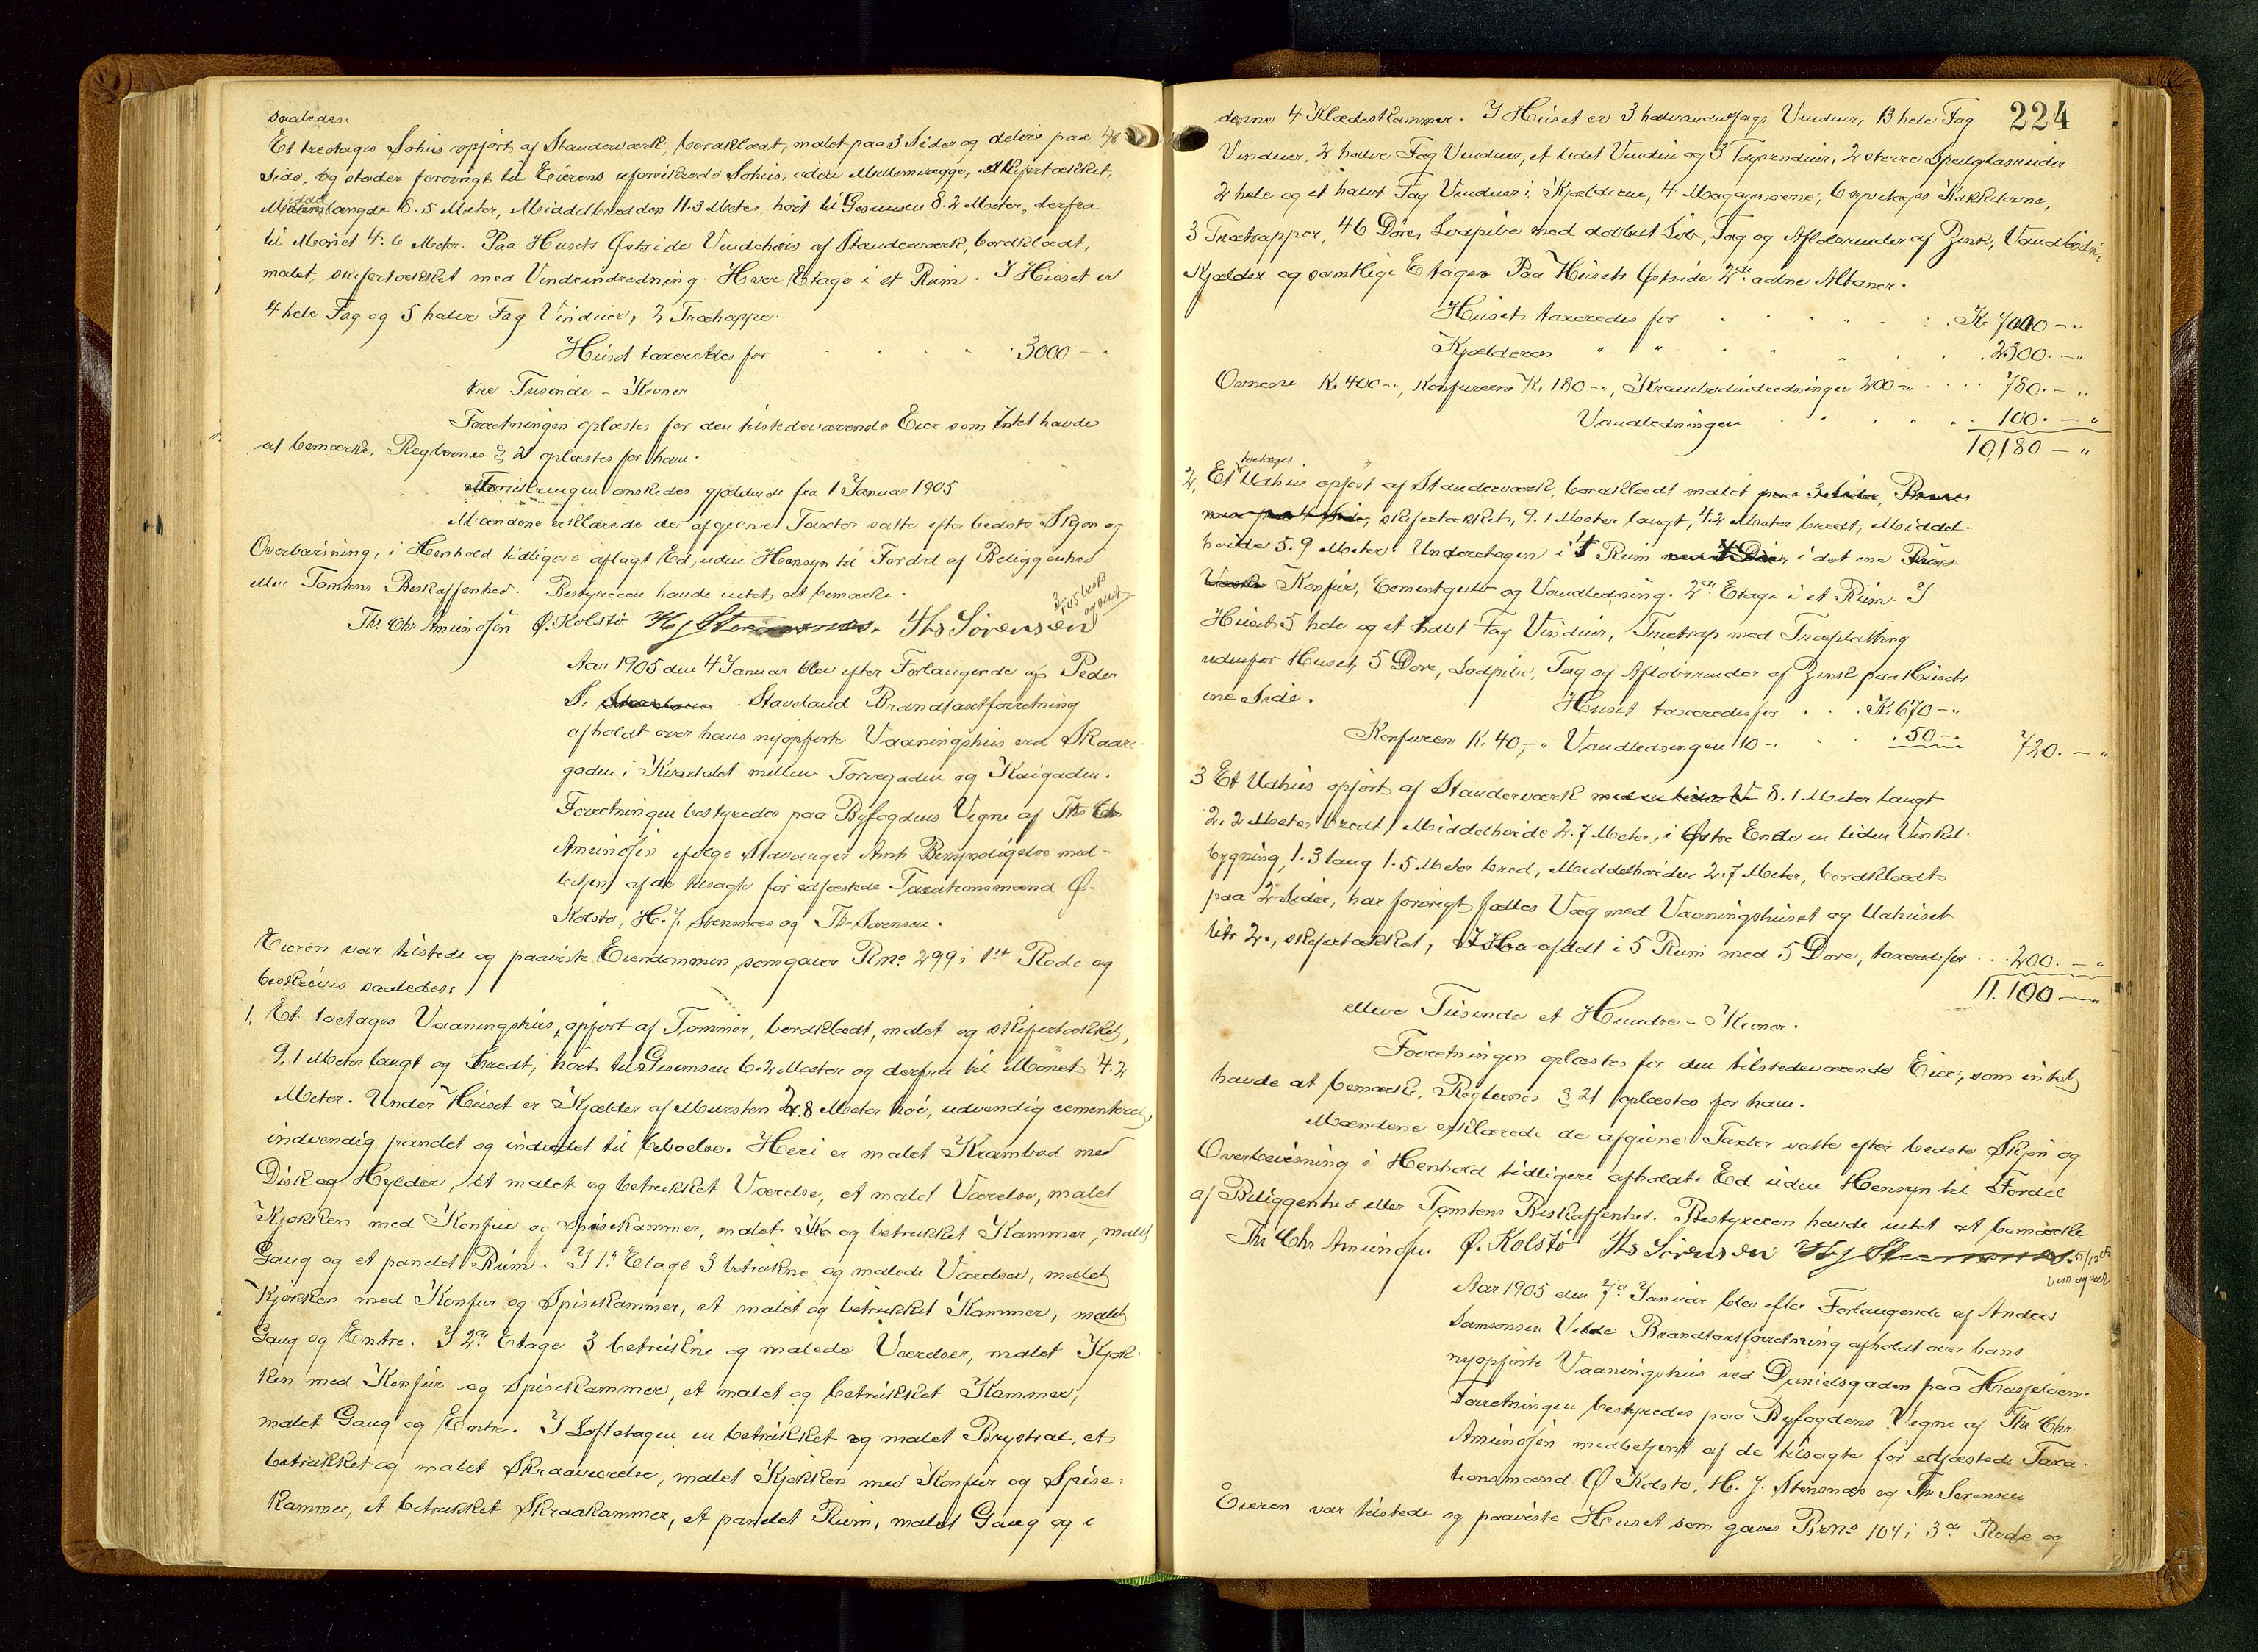 saaledes.
Et treetages Søhus opført af Standerværk, bordklædt, malet paa 3 Sider og delvis paa 4de
Side, og støder forøvrigt til Eierens uforsikrede Søhus, uden Mellemvægge, skifertækket,
Middellængde 8.5 Meter, Middelbredden 11.3 Meter, høit til Gesimsen 8.2 Meter, derfra
til Mønet 4.6 Meter. Paa Husets Østside Vindehus af Standerværk, bordklædt,
malet, skifertækket med Vindeindredning. Hver Etage i et Rum. I Huset er
4 hele Fag og 5 halve Fag Vinduer, 2 Trætrapper.
Huset taxeredes for 3000 -
tre Tusinde - Kroner
Forretningen oplæstes for den tilstedeværende Eier som Intet havde
at bemærke, Reglernes § 21 oplæstes for ham.
Forsikringen ønskedes gjældende fra 1 Januar 1905
Mændene erklærede de afgivne Taxter satte efter bedste Skjøn og
Overbevisning, i Henhold tidligere aflagt Ed, uden Hensyn til Fordel af Beliggenhed
eller Tomtens Beskaffenhed. Bestyreren havde intet at bemærke.
Ths Chr Amundsen Ø. Kolstø. H J Stensnæs. Ths Sørensen
Aar 1905 den 4 Januar blev efter Forlangende af Peder
S. Staveland Brandtaxtforretning
afholdt over hans nyopførte Vaaningshus ved Skaare-
gaden i Kvartalet mellem Torvegaden og Kaigaden.
Forretningen bestyredes paa Byfogdens Vegne af Ths Chr
Amundsen ifølge Stavanger Amts Bemyndigelse med-
betjent af de tilsagte før edfæstede Taxationsmænd Ø.
Kolstø, H. J. Stensnæs og Th. Sørensen.
Eieren var tilstede og paaviste Eiendommen, som gaves Bno 299 i 1ste Rode og
beskrives saaledes:
1. Et toetages Vaaningshus, opført af Tømmer, bordklædt, malet og skifertækket,
9.1 Meter langt og bredt, høit til Gesimsen 6.2 Meter og derfra til Mønet 4.2
Meter. Under Huset er Kjælder af Mursten 2.8 Meter høi, udvendig cementeret,
indvendig panelet og indredet til Beboelse. Heri er malet Krambod med
Disk og Hylder, et malet og betrukket Værelse, et malet Værelse, malet
Kjøkken med Komfur og Spisekammer, malet og betrukket Kammer, malet
Gang og et panelet Rum. I 1ste Etage 3 betrukne og malede Værelser, malet
Kjøkken med Komfur og Spisekammer, et malet og betrukket Kammer, malet
Gang og Entre. I 2den Etage 3 betrukne og malede Værelser, malet Kjøk-
ken med Komfur og Spisekammer, et malet og betrukket Kammer,
malet Gang og Entre. I Loftetagen en betrukket og malet Brystsal, et
betrukket og malet Skraaværelse, malet Kjøkken med Komfur og Spise-
kammer, et betrukket Skraakammer, et panelet Rum, malet Gang og i
224
denne 4 Klædeskammer. I Huset er 3 halvandetfags Vinduer, 13 hele Fag
Vinduer, 2 halve Fag Vinduer, et lidet Vindu og 3 Tagvinduer, 2 større Speilglasruder
2 hele og et halvt Fag Vinduer i Kjælderne, 4 Magasinovne, 6 Kakkelovne,
3 Trætrapper, 46 Døre, Lodpibe med dobbelt Løb, Tag og Afløbsrender af Zink, Vandledn.
Kjælder og samtlige Etager. Paa Husets Østside 2de aabne Altaner.
Huset taxeredes for K 7000 -
Kjælderen 2300. -
Ovnene K. 400 -, Komfurerne K. 180 -, Krambodindredningen 200 - 780. -
Vandledningen 100. -
10,180 -
2. Et toetages Udhus opført af Standerværk, bordklædt malet
skifertækket, 9.1 Meter langt, 4.2 Meter bredt, Middel-
høide 5.9 Meter. Underetagen i 4 Rum i det ene
Komfur, Cementgulv og Vandledning. 2den Etage i et Rum. I
Huset 5 hele og et halvt Fag Vinduer, Trætrap med Træplatting
udenfor Huset, 5 Døre, Lodpibe, Tag og Afløbsrender af Zink paa Husets
ene Side.
Huset taxeredes for K 670 -
Komfuren K. 40,- Vandledningen 10 - 50 - 720. -
3 Et Udhus opført af Standerværk 8.1 Meter langt
2.2 Meter bredt, Middelhøide 2.7 Meter, i Østre Ende en liden Vinkel-
bygning, 1.3 lang 1.5 Meter bred, Middelhøiden 2.7 Meter, bordklædt
paa 2 Sider, har forøvrigt fælles Væg med Vaaningshuset og Udhuset
litr 2., skifertækket, afdelt i 5 Rum med 5 Døre, taxeredes for 200. -
11.100 -
elleve Tusinde et Hundre - Kroner.
Forretningen oplæstes for den tilstedeværende Eier, som intet
havde at bemærke, Reglernes § 21 oplæstes for ham.
Mændene erklærede de afgivne Taxter satte efter bedste Skjøn og
Overbevisning i Henhold tidligere afholdt Ed uden Hensyn til Fordel
af Beliggenhed eller Tomtens Beskaffenhed. Bestyreren havde intet at bemærke
Ths Chr Amundsen Ø. Kolstø Ths Sørensen H J Stensnæs.
Aar 1905 den 7de Januar blev efter Forlangende af Anders
Samsonsen Velde Brandtaxtforretning afholdt over hans
nyopførte Vaaningshus ved Danielsgaden paa Hasseløen.
Forretningen bestyredes paa Byfogdens Vegne af Ths Chr.
Amundsen medbetjent af de tilsagte før edfæstede Taxa-
tionsmænd Ø Kolstø, H. J. Stensnæs og Th Sørensen
Eieren var tilstede og paaviste Huset som gaves Brno 104 i 3die Rode og